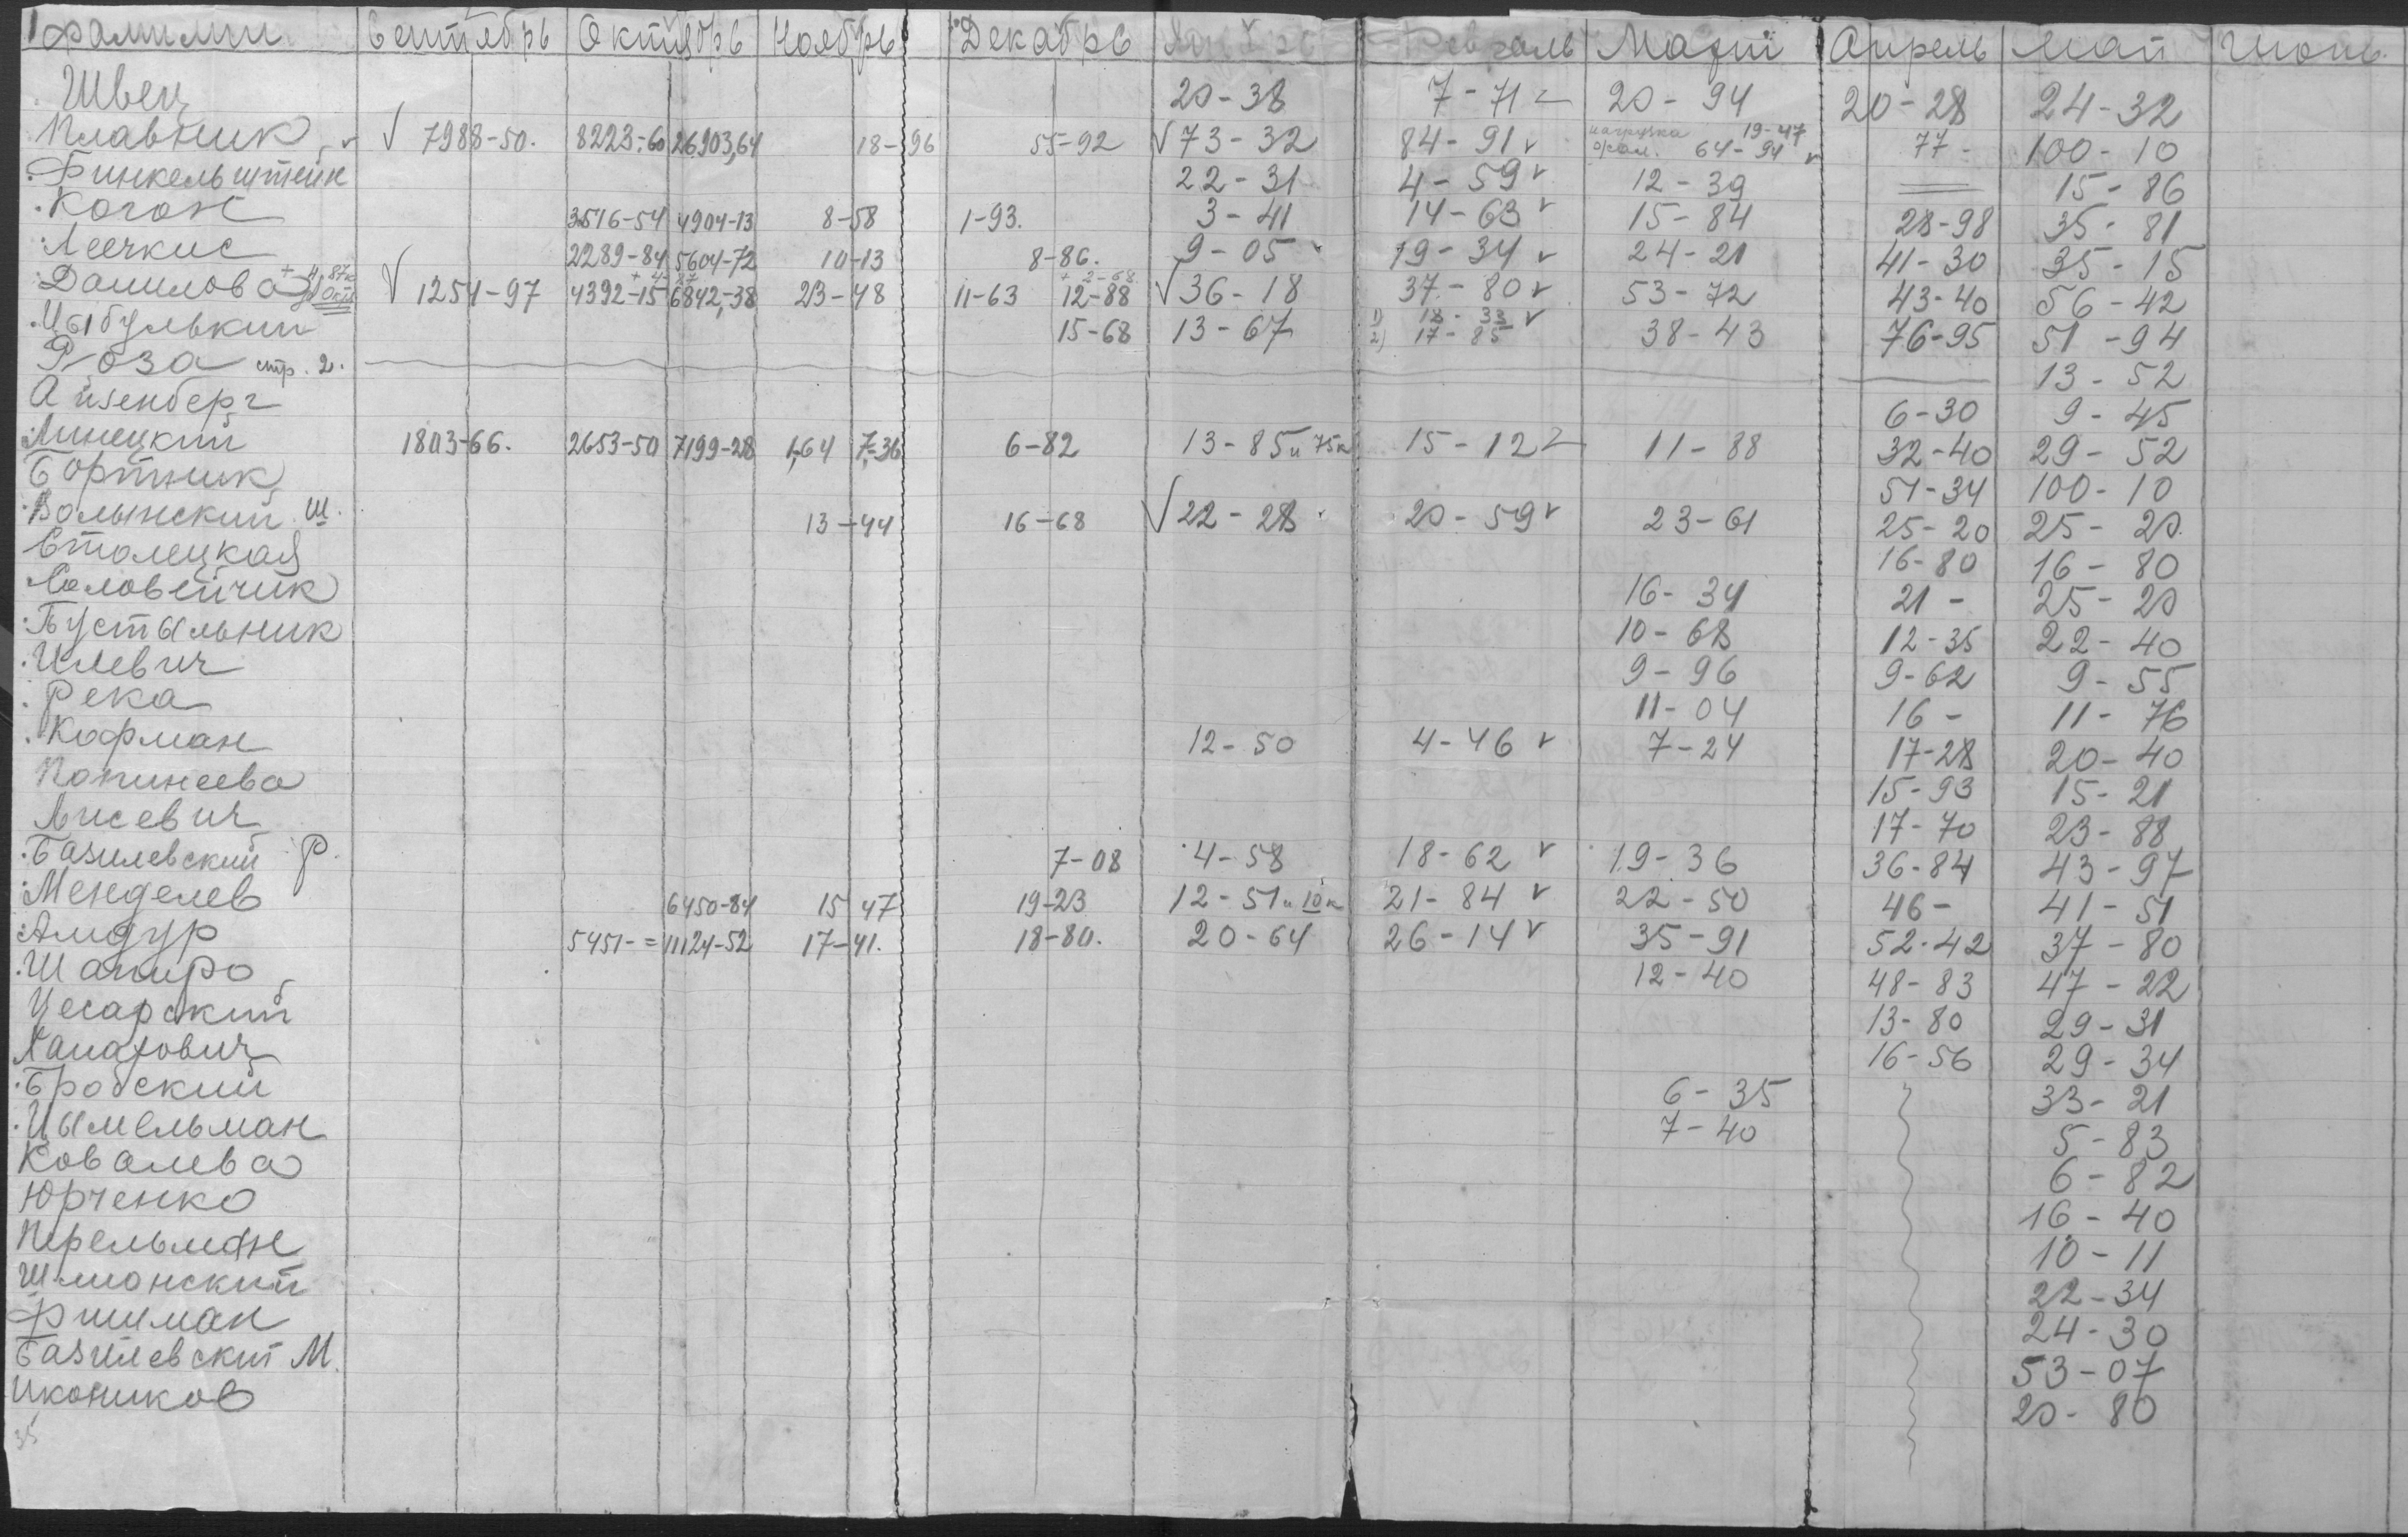 Фамилии Сентябрь Октябрь Ноябрь Декабрь Январь Февраль Март Апрель Май Июнь
Швец 20-38 7-71 20-94 20-28 24-32
Плавник √ 7988-50. 8223-60 26903,64 18-96 55-92 √73-32 84-91 нагрузка 19-47 64-94 77- 100-10
Финкельштейн 22-31 4-59 12-39 15-86
Коган 3516-54 4904-13 8-58 1-93. 3-41 14-63 15-84 28-98 35-81
Лечкис 2289-84 5604-72 10-13 8-86. 9-05 19-34 24-21 41-30 35-15
Данилова √ 1254-97 4392-15 6842-38 23-48 11-63 + 2-68 12-88 √36-18 37-80 53-72 43-40 56-42
Цыбулькин 15-68 13-67 1) 18-33 2) 17-85 38-43 76-95 51-94
Роза стр. 2. 13-52
Айзенберг 6-30 9-45
Линецкий 1803-66. 2653-50 7199-28 1,64 7-36 6-82 13-85 и 75к 15-12 11-88 32-40 29-52
Бортник 51-34 100-10
Волынский Ш. 13-44 16-68 √22-28 20-59 23-61 25-20 25-20
Столецкая 16-80 16-80
Соловейчик 16-34 21- 25-20
Пустыльник 10-68 12-35 22-40
Илевич 9-96 9-62 9-55
Река 11-04 16- 11-76
Кофман 12-50 4-46 7-24 17-28 20-40
15-93 15-21
Лисевич 17-70 23-88
Базилевский Р. 7-08 4-58 18-62 19-36 36-84 43-97
Менделев 6450-84 15 47 19-23 12-51 и 10к 21-84 22-50 46- 41-51
Амдур 5451-= 11124-52 17-41. 18-80. 20-64 26-14 35-91 52-42 37-80
Шапиро 12-40 48-83 47-22
Цесарский 13-80 29-31
16-56 29-34
Бродский 6-35 33-21
Цымельман 7-40 5-83
Ковалева 6-82
Юрченко 16-40
Перельман 10-11
Шмонский 22-34
Фишман 24-30
Базилевский М. 53-07
Икоников 20-80
35